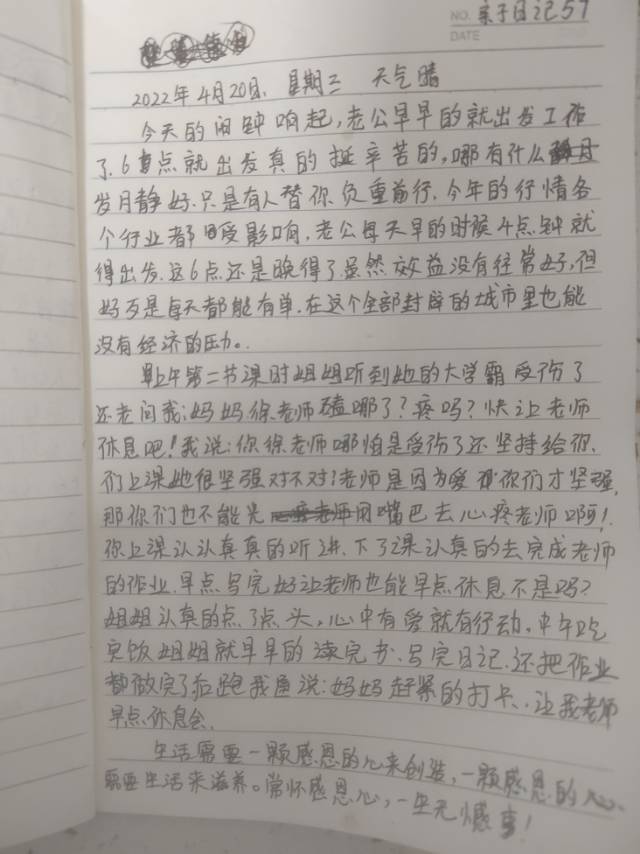 NO. 亲子日记57
DATE
2022年4月20日、星期三 天气晴
今天的闹钟响起,老公早早的就出发工作
了、6点就出发真的挺辛苦的,哪有什么
岁月静好、只是有人替你负重前行、今年的行情各
个行业都受影响,老公每天早的时候4点钟就
得出发、这6点还是晚得了虽然效益没有往常好,但
好歹是每天都能有单、在这个全部封闭的城市里也能
没有经济的压力。
早上午第二节课时姐姐听到她的大学霸受伤了
还老问我:妈妈徐老师磕哪了?疼吗?快让老师
休息吧!我说:你徐老师哪怕是受伤了还坚持给你
们上课她很坚强对不对!老师是因为爱你们才坚强,
那你们也不能光用嘴巴去心疼老师啊!
你上课认认真真的听讲、下了课认真的去完成老师
的作业、早点写完好让老师也能早点休息不是吗?
姐姐认真的点了点头,心中有爱就有行动,中午吃
完饭姐姐就早早的读完书、写完日记、还把作业
都做完了后跑我说:妈妈赶紧的打卡、让我老师
早点休息会、
生活需要一颗感恩的心来创造,一颗感恩的心、
需要生活来滋养。常怀感恩心,一生无憾事!